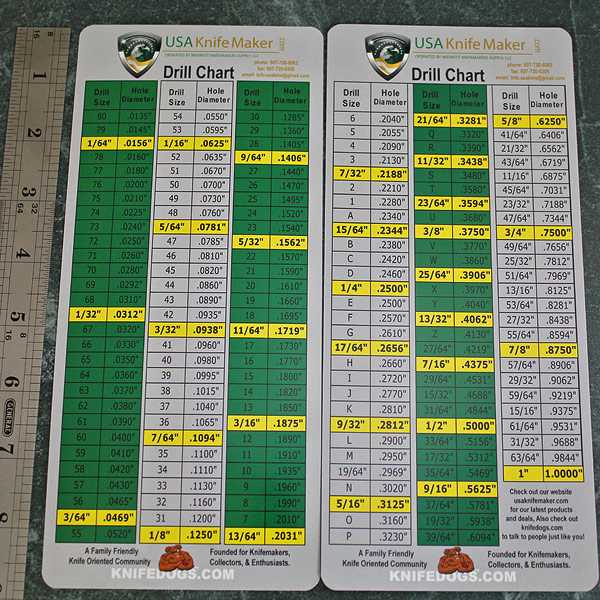 8
16
1
2
3
32
64
4
5
8
16
6
GENERAL
7
USA Knife Maker .com
OPERATED BY MIDWEST KNIFEMAKERS SUPPLY LLC
phone: 507-720-6063
Drill Chart
Drill Size
Hole Diameter
80 .0135"
79 .0145"
1/64" .0156"
78 .0160"
77 .0180"
76 .0200"
75 .0210"
74 .0225"
73 .0240"
72 .0250"
71 .0260"
70 .0280"
69 .0292"
68 .0310"
1/32" .0312"
67 .0320"
66 .0330"
65 .0350"
64 .0360"
63 .0370"
62 .0380"
61 .0390"
60 .0400"
59 .0410"
58 .0420"
57 .0430"
56 .0465"
3/64" .0469"
55 .0520"
Drill Size
Hole Diameter
54 .0550"
53 .0595"
1/16" .0625"
52 .0635"
51 .0670"
50 .0700"
49 .0730"
48 .0760"
5/64" .0781"
47 .0785"
46 .0810"
45 .0820"
44 .0860"
43 .0890"
42 .0935"
3/32" .0938"
41 .0960"
40 .0980"
39 .0995"
38 .1015"
37 .1040"
36 .1065"
7/64" .1094"
35 .1100"
34 .1110"
33 .1130"
32 .1160"
31 .1200"
1/8" .1250"
Drill Size
Hole Diameter
30 .1285"
29 .1360"
28 .1405"
9/64" .1406"
27 .1440"
26 .1470"
25 .1495"
24 .1520"
23 .1540"
5/32" .1562"
22 .1570"
21 .1590"
20 .1610"
19 .1660"
18 .1695"
11/64" .1719"
17 .1730"
16 .1770"
15 .1800"
14 .1820"
13 .1850"
3/16" .1875"
12 .1890"
11 .1910"
10 .1935"
9 .1960"
8 .1990"
7 .2010"
13/64" .2031"
A Family Friendly
Knife Oriented Community
Founded for Knifemakers,
Collectors, & Enthusiasts.
KNIFEDOGS.COM
USA Knife Maker .com
OPERATED BY MIDWEST KNIFEMAKERS SUPPLY LLC
Drill Chart
Drill Size
Hole Diameter
6 .2040"
5 .2055"
4 .2090"
3 .2130"
7/32" .2188"
2 .2210"
1 .2280"
A .2340"
15/64" .2344"
B .2380"
C .2420"
D .2460"
1/4" .2500"
E .2500"
F .2570"
G .2610"
17/64" .2656"
H .2660"
I .2720"
J .2770"
K .2810"
9/32" .2812"
L .2900"
M .2950"
19/64" .2969"
N .3020"
5/16" .3125"
O .3160"
P .3230"
Drill Size
Hole Diameter
21/64" .3281"
Q .3320"
R .3390"
11/32" .3438"
S .3480"
T .3580"
23/64" .3594"
U .3680"
3/8" .3750"
V .3770"
W .3860"
25/64" .3906"
X .3970"
Y .4040"
13/32" .4062"
Z .4130"
27/64" .4219"
7/16" .4375"
29/64" .4531"
15/32" .4688"
31/64" .4844"
1/2" .5000"
33/64" .5156"
17/32" .5312"
35/64" .5469"
9/16" .5625"
37/64" .5781"
19/32" .5938"
39/64" .6094"
Drill Size
Hole Diameter
5/8" .6250"
41/64" .6406"
21/32" .6562"
43/64" .6719"
11/16" .6875"
45/64" .7031"
23/32" .7188"
47/64" .7344"
3/4" .7500"
49/64" .7656"
25/32" .7812"
51/64" .7969"
13/16" .8125"
53/64" .8281"
27/32" .8438"
55/64" .8594"
7/8" .8750"
57/64" .8906"
29/32" .9062"
59/64" .9219"
15/16" .9375"
61/64" .9531"
31/32" .9688"
63/64" .9844"
1" 1.0000"
Check out our website
usaknifemaker.com
for our latest products
and deals, Also check out
knifedogs.com
to talk to people just like you!
A Family Friendly
Knife Oriented Community
Founded for Knifemakers,
Collectors, & Enthusiasts.
KNIFEDOGS.COM